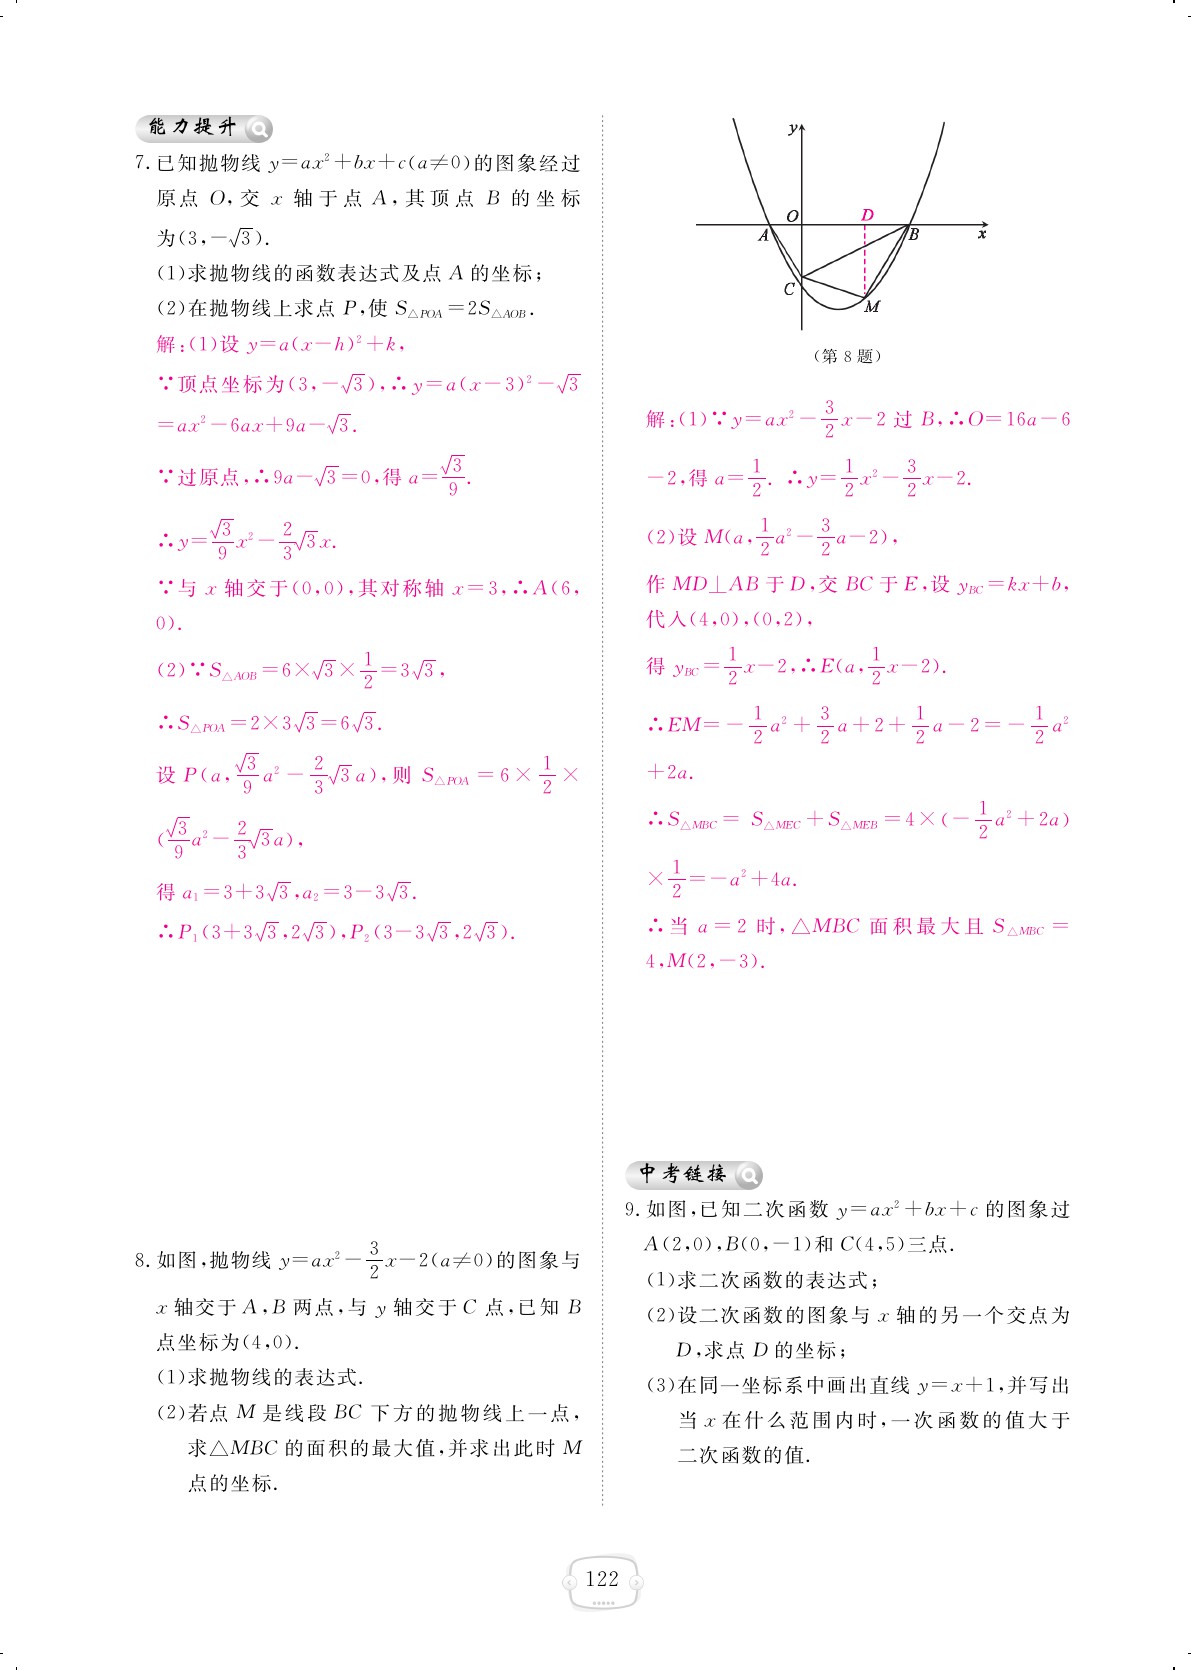 能力提升
7. 已知抛物线 y=ax²+bx+c(a≠0)的图象经过
原点 O,交 x 轴于点 A,其顶点 B 的坐标
为(3,-√3).
(1)求抛物线的函数表达式及点 A 的坐标;
(2)在抛物线上求点 P,使 S△POA=2S△AOB.
解:(1)设 y=a(x-h)²+k,
∵顶点坐标为(3,-√3),∴y=a(x-3)²-√3
=ax²-6ax+9a-√3.
∵过原点,∴9a-√3=0,得 a=√3/9.
∴y=√3/9x²-2/3√3x.
∵与 x 轴交于(0,0),其对称轴 x=3,∴A(6,
0).
(2)∵S△AOB=6×√3×1/2=3√3,
∴S△POA=2×3√3=6√3.
设 P(a,√3/9a²-2/3√3a),则 S△POA=6×1/2×
(√3/9a²-2/3√3a),
得 a₁=3+3√3,a₂=3-3√3.
∴P₁(3+3√3,2√3),P₂(3-3√3,2√3).
8. 如图,抛物线 y=ax²-3/2x-2(a≠0)的图象与
x 轴交于 A,B 两点,与 y 轴交于 C 点,已知 B
点坐标为(4,0).
(1)求抛物线的表达式.
(2)若点 M 是线段 BC 下方的抛物线上一点,
求△MBC 的面积的最大值,并求出此时 M
点的坐标.
y
O
D
A
B
x
C
M
(第 8 题)
解:(1)∵y=ax²-3/2x-2 过 B,∴O=16a-6
-2,得 a=1/2. ∴y=1/2x²-3/2x-2.
(2)设 M(a,1/2a²-3/2a-2),
作 MD⊥AB 于 D,交 BC 于 E,设 yBC=kx+b,
代入(4,0),(0,2),
得 yBC=1/2x-2,∴E(a,1/2x-2).
∴EM=-1/2a²+3/2a+2+1/2a-2=-1/2a²
+2a.
∴S△MBC=S△MEC+S△MEB=4×(-1/2a²+2a)
×1/2=-a²+4a.
∴当 a=2 时,△MBC 面积最大且 S△MBC=
4,M(2,-3).
中考链接
9. 如图,已知二次函数 y=ax²+bx+c 的图象过
A(2,0),B(0,-1)和 C(4,5)三点.
(1)求二次函数的表达式;
(2)设二次函数的图象与 x 轴的另一个交点为
D,求点 D 的坐标;
(3)在同一坐标系中画出直线 y=x+1,并写出
当 x 在什么范围内时,一次函数的值大于
二次函数的值.
122